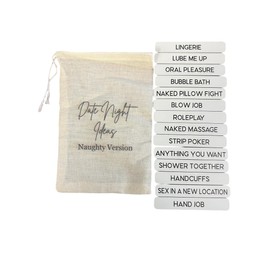 Date Night
Ideas
Naughty Version
LINGERIE
LUBE ME UP
ORAL PLEASURE
BUBBLE BATH
NAKED PILLOW FIGHT
BLOW JOB
ROLEPLAY
NAKED MASSAGE
STRIP POKER
ANYTHING YOU WANT
SHOWER TOGETHER
HANDCUFFS
SEX IN A NEW LOCATION
HAND JOB